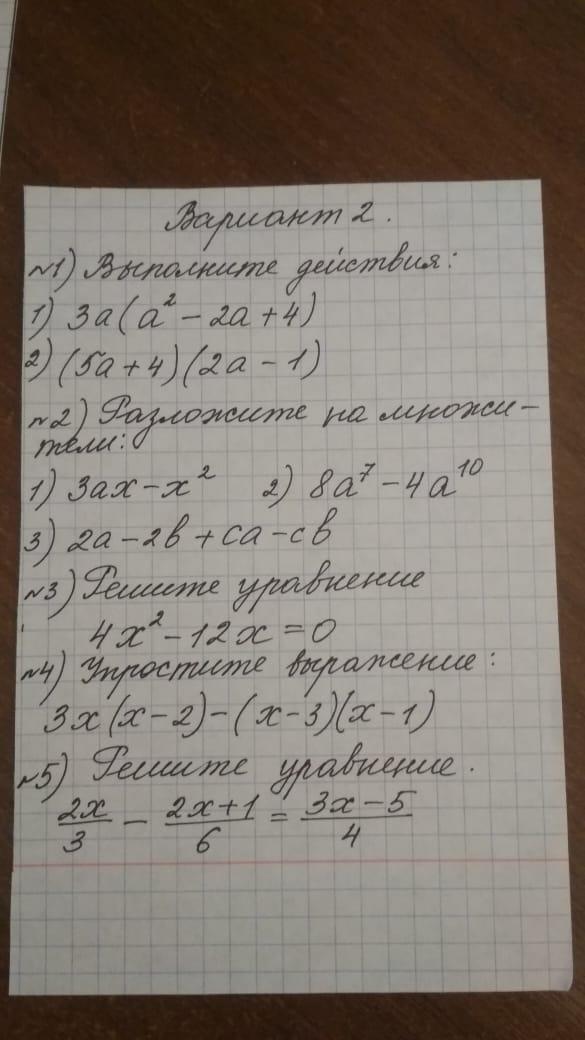 Вариант 2.
№1) Выполните действия:
1) 3a(a² - 2a + 4)
2) (5a + 4)(2a - 1)
№2) Разложите на множи-
тели:
1) 3ax - x² 2) 8a⁷ - 4a¹⁰
3) 2a - 2b + ca - cb
№3) Решите уравнение
4x² - 12x = 0
№4) Упростите выражение:
3x(x - 2) - (x - 3)(x - 1)
№5) Решите уравнение.
2x/3 - (2x + 1)/6 = (3x - 5)/4